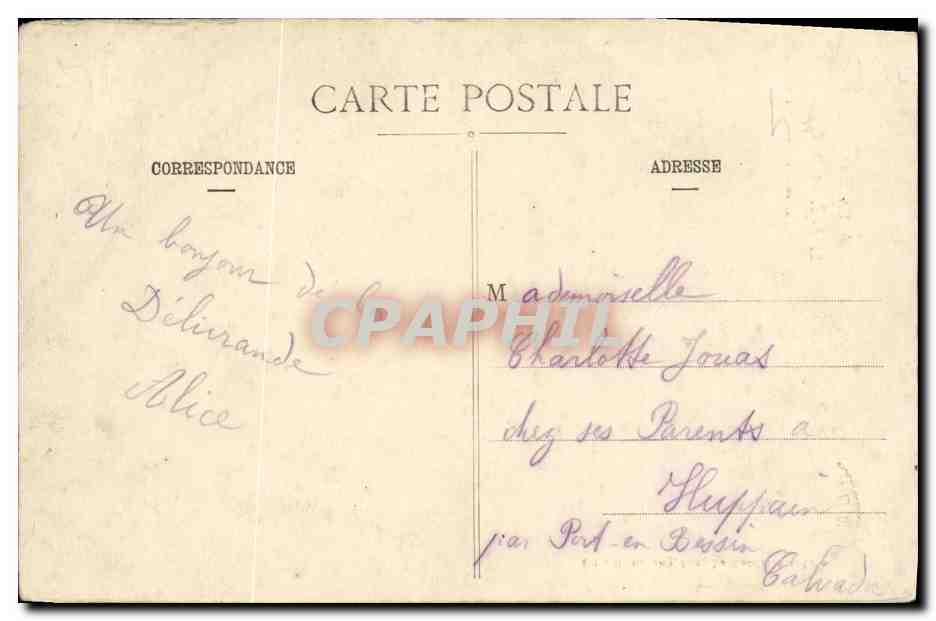 CARTE POSTALE
CORRESPONDANCE
Un bonjour de la
Délivrande
Alice
ADRESSE
Mademoiselle
Charlotte Jouas
chez ses Parents a
Huppain
par Port-en Bessin
Calvados
CPAPHIL